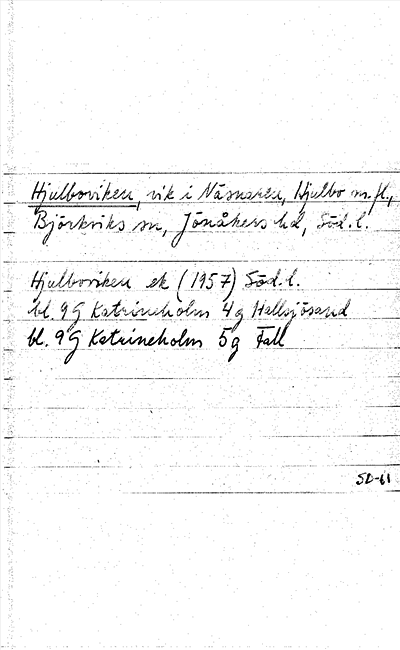 Hjulboviken, vik i Näsnaren, Hjulbo m.fl.,
Björkviks sn, Jönåkers hd, Söd. l.
Hjulboviken ek (1957) Söd. l.
bl. 9G Katrineholm 4g Hallsjösand
bl. 9G Katrineholm 5g Fall
SD-61